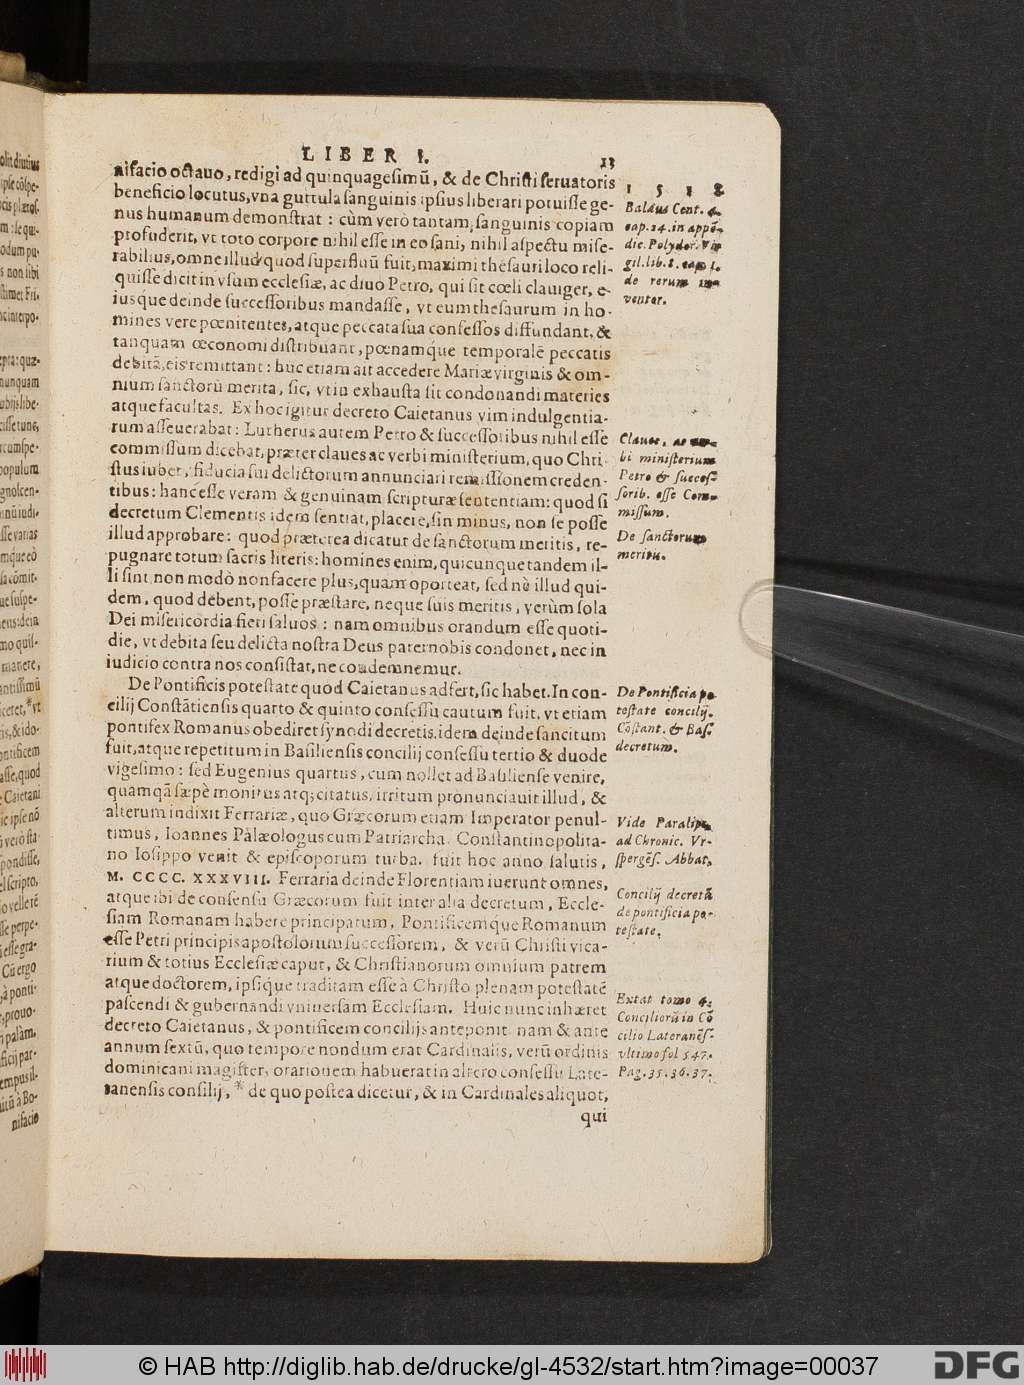 LIBER I. 23
nifacio octauo, redigi ad quinquagesimũ, & de Christi seruatoris
beneficio locutus, vna guttula sanguinis ipsius liberari potuisse ge-
nus humanum demonstrat: cùm verò tantam, sanguinis copiam
profuderit, vt toto corpore nihil esse in eo sani, nihil aspectu mise-
rabilius, omne illud quod superfluũ fuit, maximi thesauri loco reli-
quisse dicit in vsum ecclesiæ, ac diuo Petro, qui sit cœli clauiger, e-
iusque deinde successoribus mandasse, vt eum thesaurum in ho-
mines vere pœnitentes, atque peccata sua confessos diffundant, &
tanquam œconomi distribuant, pœnamq́ue temporalẽ peccatis
debitã, eis remittant: huc etiam ait accedere Mariæ virginis & om-
nium sanctorũ merita, sic, vt in exhausta sit condonandi materies
atque facultas. Ex hoc igitur decreto Caietanus vim indulgentia-
rum asseuerabat: Lutherus autem Petro & successoribus nihil esse
commissum dicebat, præter claues ac verbi ministerium, quo Chri-
stus iubet, fiducia sui delictorum annunciari remissionem creden-
tibus: hanc esse veram & genuinam scripturæ sententiam: quod si
decretum Clementis idem sentiat, placere, sin minus, non se posse
illud approbare: quod præterea dicatur de sanctorum meritis, re-
pugnare totum sacris literis: homines enim, quicunque tandem il-
li sint, non modò non facere plus, quam oporteat, sed nè illud qui-
dem, quod debent, posse præstare, neque suis meritis, verùm sola
Dei misericordia fieri saluos: nam omnibus orandum esse quoti-
die, vt debita seu delicta nostra Deus pater nobis condonet, nec in
iudicio contra nos consistat, ne condemnemur.
De Pontificis potestate quod Caietanus adfert, sic habet. In con-
cilij Constãtiensis quarto & quinto consessu cautum fuit, vt etiam
pontifex Romanus obediret synodi decretis. idem deinde sancitum
fuit, atque repetitum in Basiliensis concilij consessu tertio & duode
vigesimo: sed Eugenius quartus, cum nollet ad Basiliense venire,
quamquã sæpè monitus atq; citatus, irritum pronunciauit illud, &
alterum indixit Ferrariæ, quo Græcorum etiam Imperator penul-
timus, Ioannes Palæologus cum Patriarcha Constantinopolita-
no Iosippo venit & episcoporum turba. fuit hoc anno salutis,
M. CCCC. XXXVIII. Ferraria deinde Florentiam iuerunt omnes,
atque ibi de consensu Græcorum fuit inter alia decretum, Eccle-
siam Romanam habere principatum, Pontificemque Romanum
esse Petri principis apostolorum successorem, & verũ Christi vica-
rium & totius Ecclesiæ caput, & Christianorum omnium patrem
atque doctorem, ipsique traditam esse à Christo plenam potestatẽ
pascendi & gubernandi vniuersam Ecclesiam. Huic nunc inhæret
decreto Caietanus, & pontificem concilijs anteponit nam & ante
annum sextũ, quo tempore nondum erat Cardinalis, verũ ordinis
dominicani magister, orationem habuerat in altero consessu Late-
ranensis consilij, * de quo postea dicetur, & in Cardinales aliquot,
qui
1 5 1 8
Baldus Cent. 4.
cap. 24. in appẽ-
dic. Polydor. Vir
gil. lib. 8. cap 1.
de rerum in-
ventor.
Claues, ac ver-
bi ministerium
Petro & succes-
sorib. esse Com-
missum.
De sanctorum
meritu.
De Pontificia po
testate concilij.
Cõstant. & Bas.
decretum.
Vide Paralip.
ad Chronic. Vr-
spergẽs. Abbat.
Concilij decretũ
de pontificia po-
testate.
Extat tomo 4.
Conciliorũ in Cõ
cilio Lateranẽs-
vltimo fol 547.
Pag. 35. 36. 37.
nifacio
© HAB http://diglib.hab.de/drucke/gl-4532/start.htm?image=00037
DFG